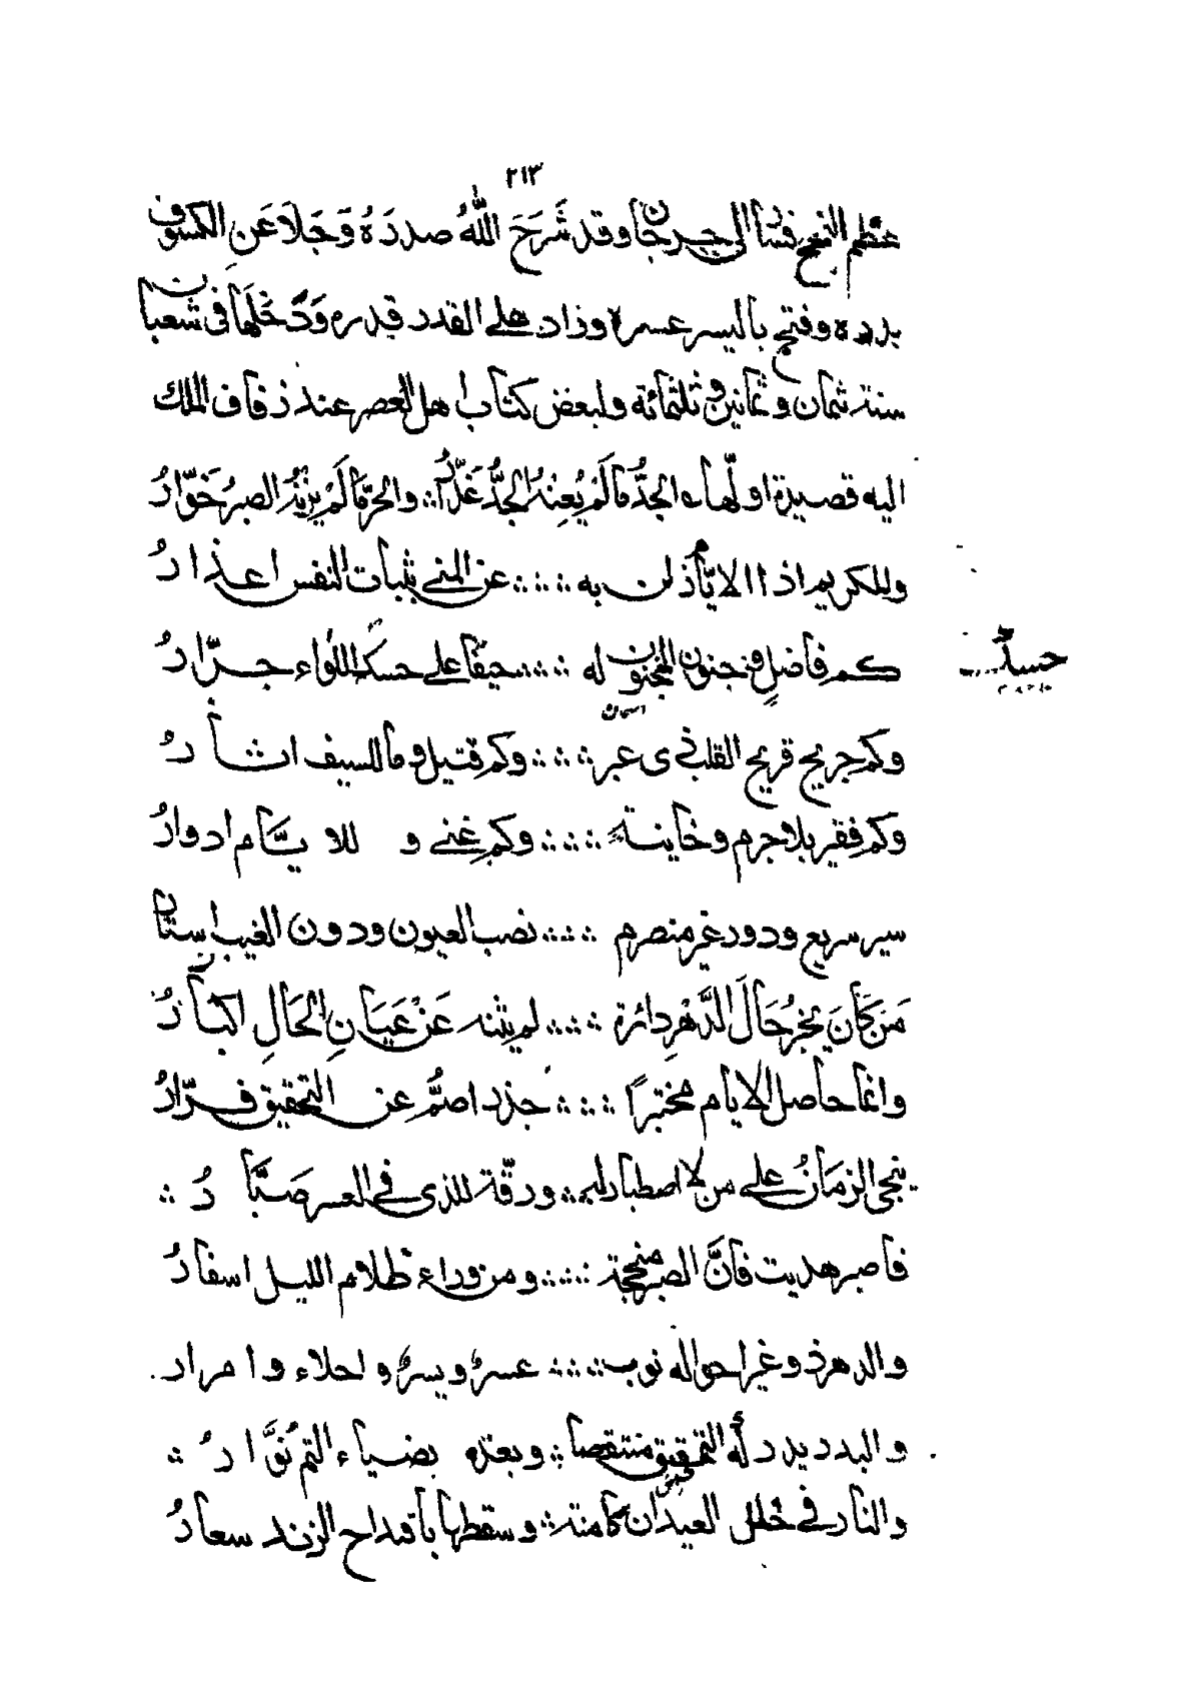 ٢١٣
عظم النجح فسار الى جرجان وقد شَرَحَ اللهُ صدرَهُ وَجَلَا عَنِ الكسوف
بدره وفتح باليسر عسره وزاد على القدر قدره وَدَخَلَها في شعبان
سنة ثمان وثمانين وثلثمائة ولبعض كتاب اهل العصر عند زفاف الملك
اليه قصيدة اولها الجدُّ مالَمْ يُعِنْهُ الجدُّ غدّارُ والحرّ مالَمْ يزنهُ الصبرُ خَوّارُ
وللكريم اذا الايّام ذلن به عن المنى بثبات النفس اعذارُ
كم فاضلٍ في جنون المجنون له حيفا على حسك اللأواء جرّارُ
حسد
وكم جريح قريح القلب ذى عبر وكم قتيل وما للسيف اثارُ
وكم فقير بلا جرم وخاينة وكم غنى و للايّام ادوارُ
سير سريع ودور غير منصرم نصب العيون ودون الغيب استار
مَن كَانَ يخبرُ حَالَ الدَّهْرِ دائرة لم يثنه عَنْ عَيَانِ الحَالِ اكبارُ
وانما حاصل الايام مختبرًا جذر اصمُّ عن التحقيق فرّارُ
ينحى الزمَانُ على من لا اصطبار له ورقّة للذى في العسر صَبَّارُ
فاصبر هديت فانَّ الصبر منجحة ومن وراء ظلام الليل اسفارُ
والدهر ذو غير احواله نوب عسرٌ ويسرٌ واحلاء وامرار
والبدر يدركه التمحيق منتقصا وبعده بضياء التم نُوَّارُ
والنار في خلل العيدان كامنة وسقطها باقتداح الزند سعارُ